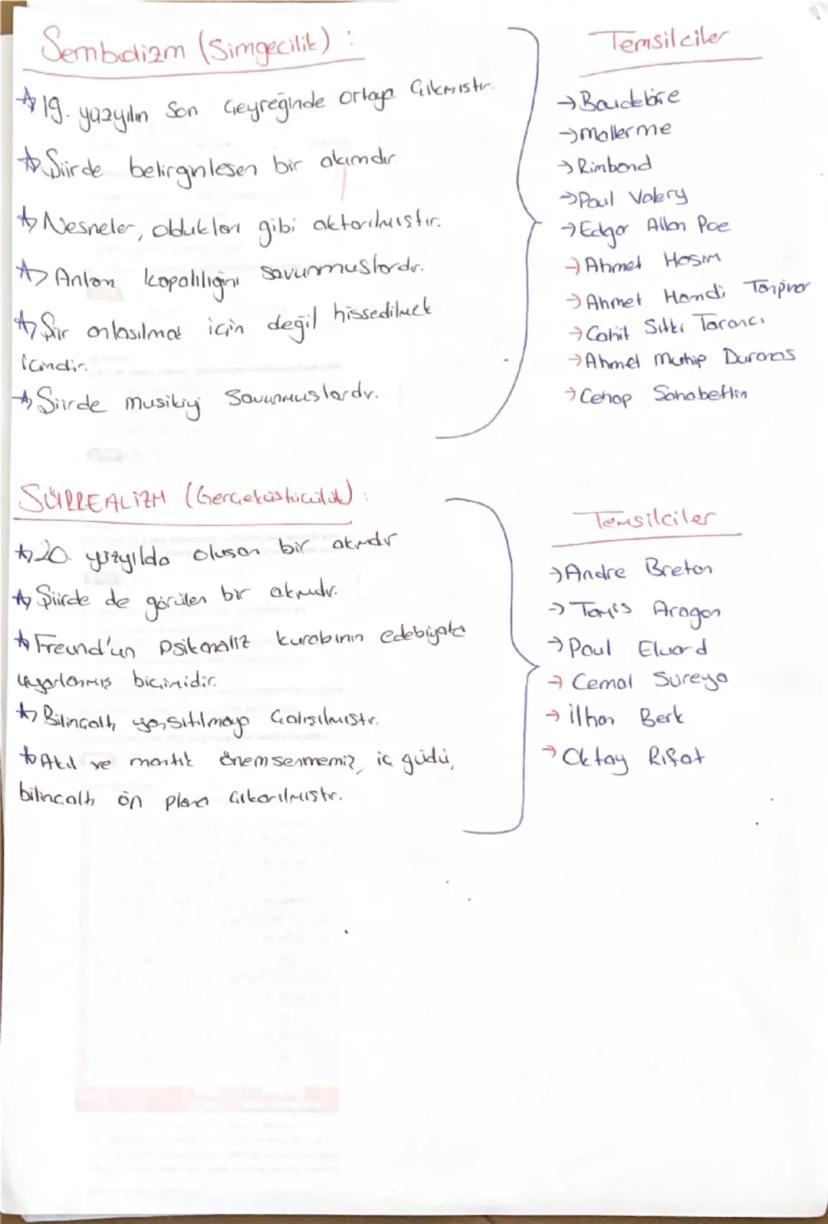 Sembolizm (Simgecilik) :
19. yüzyılın son çeyreğinde ortaya çıkmıştır.
Şiirde belirginleşen bir akımdır
Nesneler, oldukları gibi aktarılmıştır.
Anlam kapalılığını savunmuşlardır.
Şiir anlaşılmak için değil hissedilmek
içindir.
Şiirde musikiyi savunmuşlardır.
Temsilciler
→Baudelaire
→Mallerme
→Rimbond
→Paul Valery
→Edgar Allan Poe
→Ahmet Haşim
→Ahmet Hamdi Tanpınar
→Cahit Sıtkı Tarancı
→Ahmet Muhip Dıranas
→Cenap Şahabettin
SÜRREALİZM (Gerçeküstücülük) :
20. yüzyılda oluşan bir akımdır
Şiirde de görülen bir akımdır.
Freund'un Psikanaliz kuramının edebiyata
uyarlanmış biçimidir.
Bilinçaltı yansıtılmaya çalışılmıştır.
Akıl ve mantık önemsenmemiş, iç güdü,
bilinçaltı ön plana çıkarılmıştır.
Temsilciler
→Andre Breton
→ Aragon
→Paul Eluard
→ Cemal Süreya
→ İlhan Berk
→ Oktay Rifat